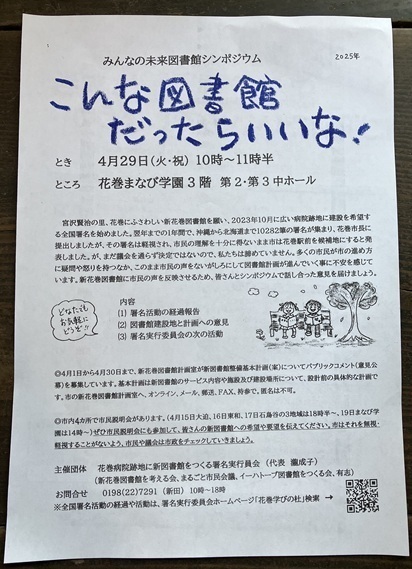 みんなの未来図書館シンポジウム
2025年
こんな図書館
だったらいいな!
とき 4月29日(火・祝) 10時～11時半
ところ 花巻まなび学園3階 第2・第3中ホール
宮沢賢治の里、花巻にふさわしい新花巻図書館を願い、2023年10月に広い病院跡地に建設を希望す
る全国署名を始めました。翌年までの1年間で、沖縄から北海道まで10282筆の署名が集まり、花巻市長に
提出しましたが、その署名は軽視され、市民の理解を十分に得ないまま市は花巻駅前を候補地にすると発
表しました。が、まだ議会を通らず決定ではないので、私たちは諦めていません。多くの市民が市の進め方
に疑問や怒りを持つなか、このまま市民の声をないがしろにして図書館計画が進んでいく事に不安を感じて
います。新花巻図書館に市民の声を反映させるため、皆さんとシンポジウムで話し合った意見を届けましょう。
どなたでも
お気軽に
どうぞ!!
内容
(1) 署名活動の経過報告
(2) 図書館建設地と計画への意見
(3) 署名実行委員会の次の活動
◎4月1日から4月30日まで、新花巻図書館計画室が新図書館整備基本計画(案)についてパブリックコメント(意見公
募)を募集しています。基本計画は新図書館のサービス内容や施設及び建設場所について、設計前の具体的な計画で
す。市の新花巻図書館計画室へ、オンライン、メール、郵送、FAX、持参で。匿名は不可。
◎市内4カ所で市民説明会があります。(4月15日大迫、16日東和、17日石鳥谷の3地域は18時半～、19日まなび学
園は14時～)ぜひ市民説明会にも参加して、皆さんの新図書館への希望や要望を伝えてください。市はそれを無視・
軽視することがないよう、市民や議会は市政をチェックしていきましょう。
主催団体 花巻病院跡地に新図書館をつくる署名実行委員会 (代表 瀧成子)
(新花巻図書館を考える会、まるごと市民会議、イーハトーブ図書館をつくる会、有志)
お問合せ 0198(22)7291 (新田) 10時～18時
※全国署名活動の経過や活動は、署名実行委員会ホームページ「花巻学びの杜」検索 →